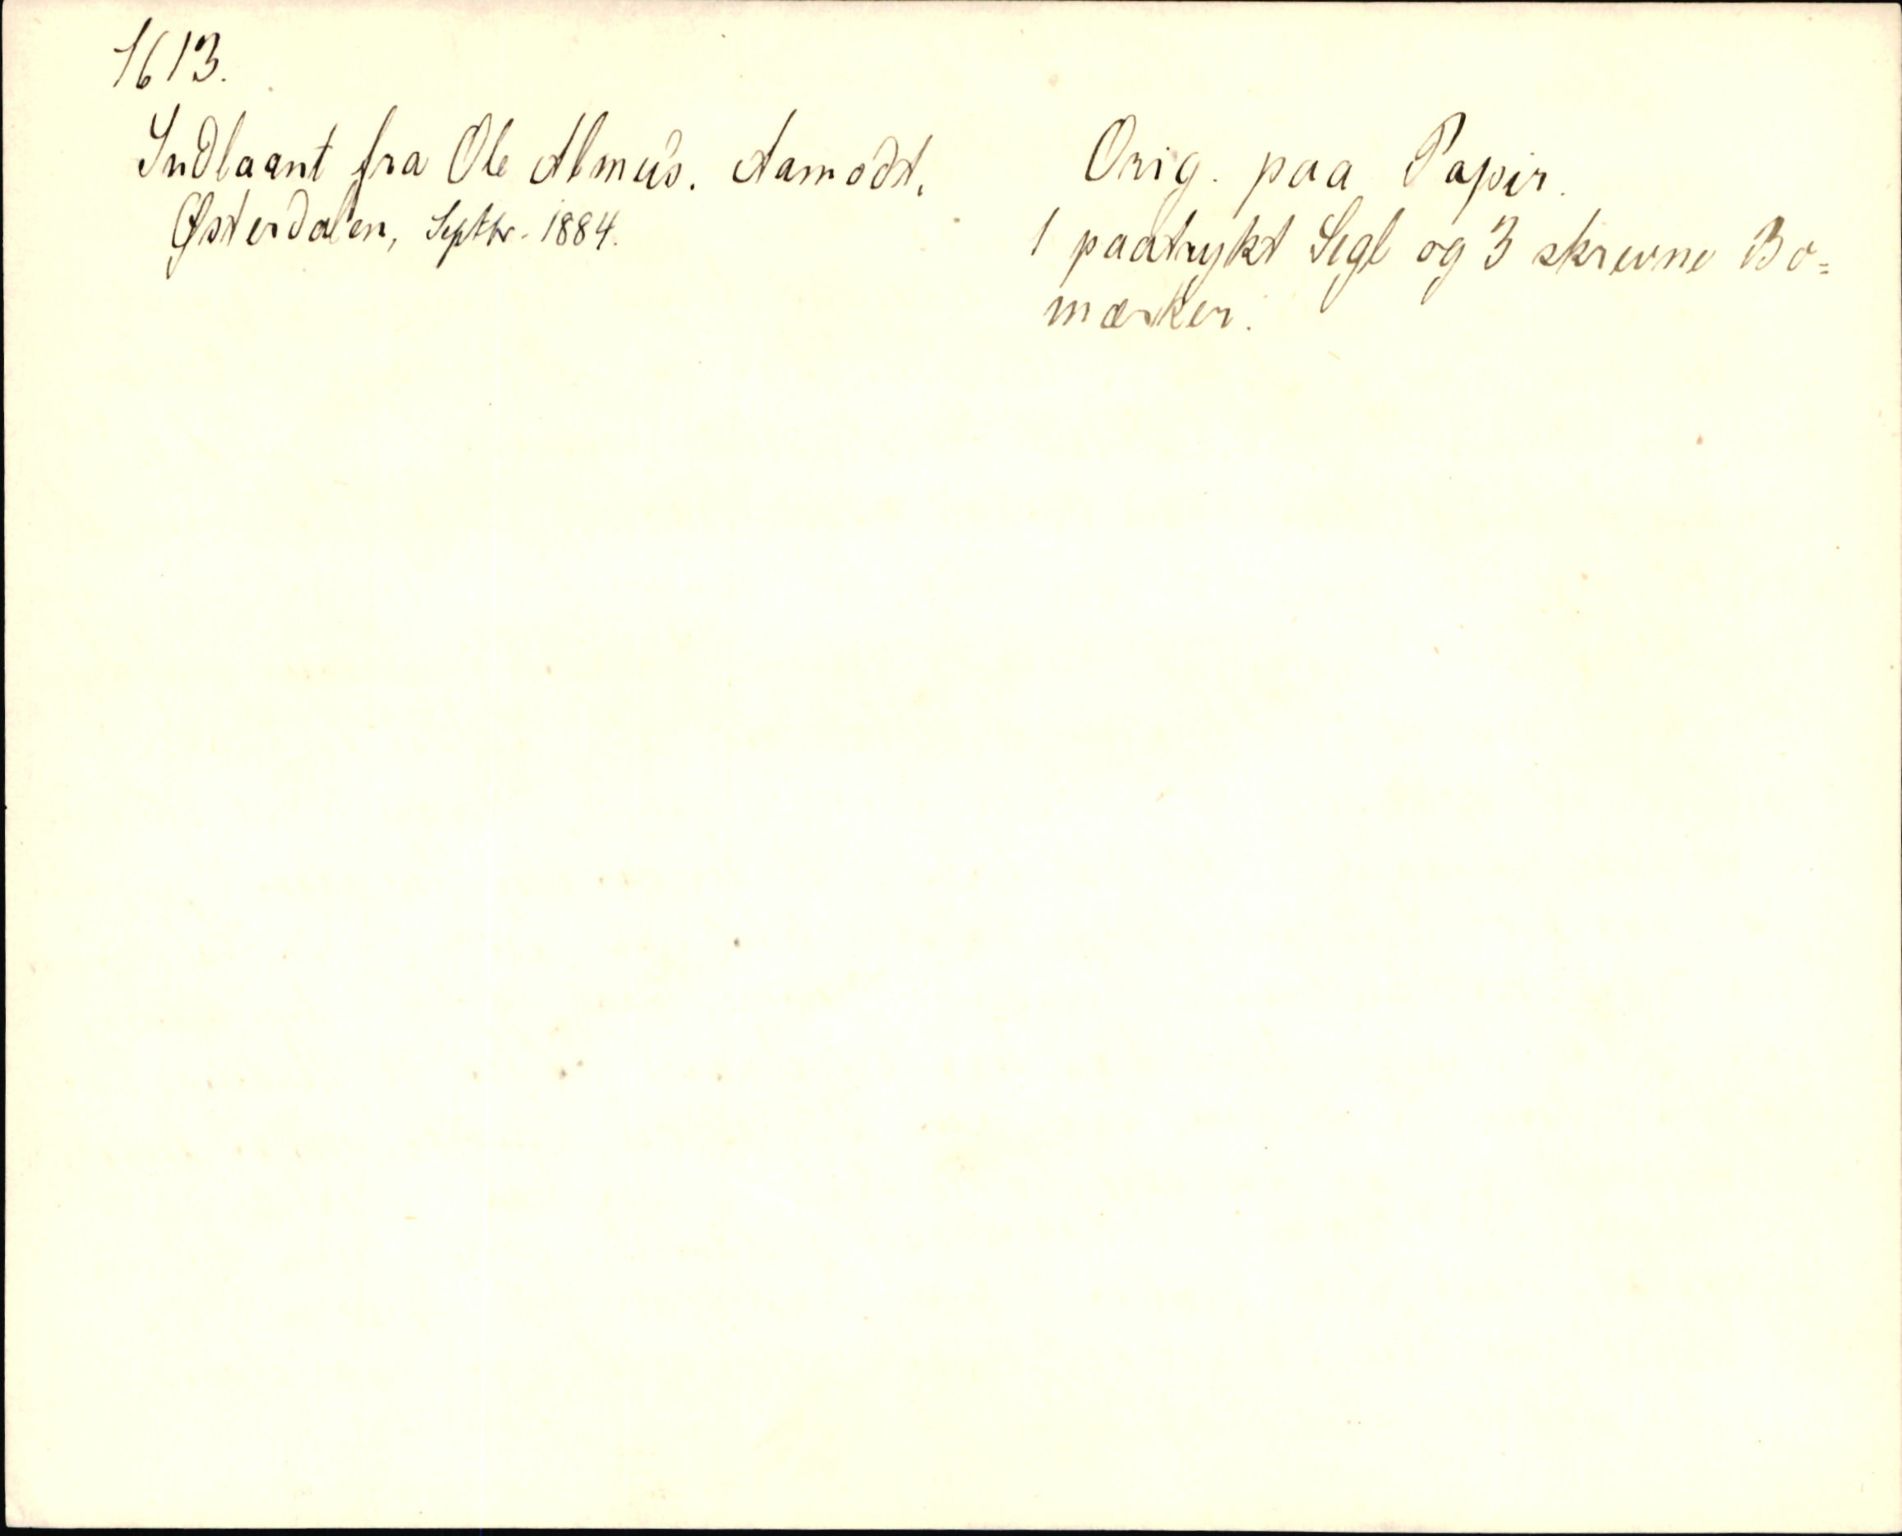 1613.
Indlaant fra Ole Almus. Aamodt,
Østerdalen, Septbr. 1884.
Orig. paa Papir.
1 paatrykt Segl og 3 skrevne Bo=
mærker.